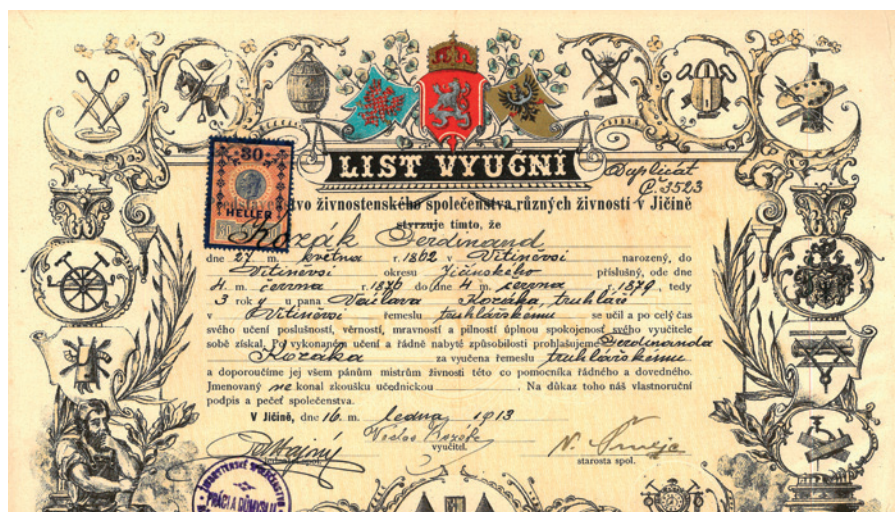 LIST VYUČNÍ
Duplicat
Č. 3523
30
HELLER
tvo živnostenského společenstva různých živností v Jičíně
stvrzuje tímto, že
Kozák Ferdinand
dne 27. m. května r. 1862 v Vitiněvsi narozený, do
Vitiněvsi okresu Jičínského příslušný, ode dne
4. m. června r. 1876 do dne 4 m. června r. 1879, tedy
3 roky u pana Václava Kozáka, truhláře
v Vitiněvsi řemeslu truhlářskému se učil a po celý čas
svého učení poslušností, věrností, mravností a pilností úplnou spokojenost svého vyučitele
sobě získal. Po vykonaném učení a řádně nabyté způsobilosti prohlašujeme Ferdinanda
Kozáka za vyučena řemeslu truhlářskému
a doporoučíme jej všem pánům mistrům živnosti této co pomocníka řádného a dovedného.
Jmenovaný ne konal zkoušku učednickou . Na důkaz toho náš vlastnoruční
podpis a pečeť společenstva.
V Jičíně, dne 16. m. ledna 1913
Václav Kozák
vyučitel.
starosta spol.
PRÁCI A DŮMYSLU